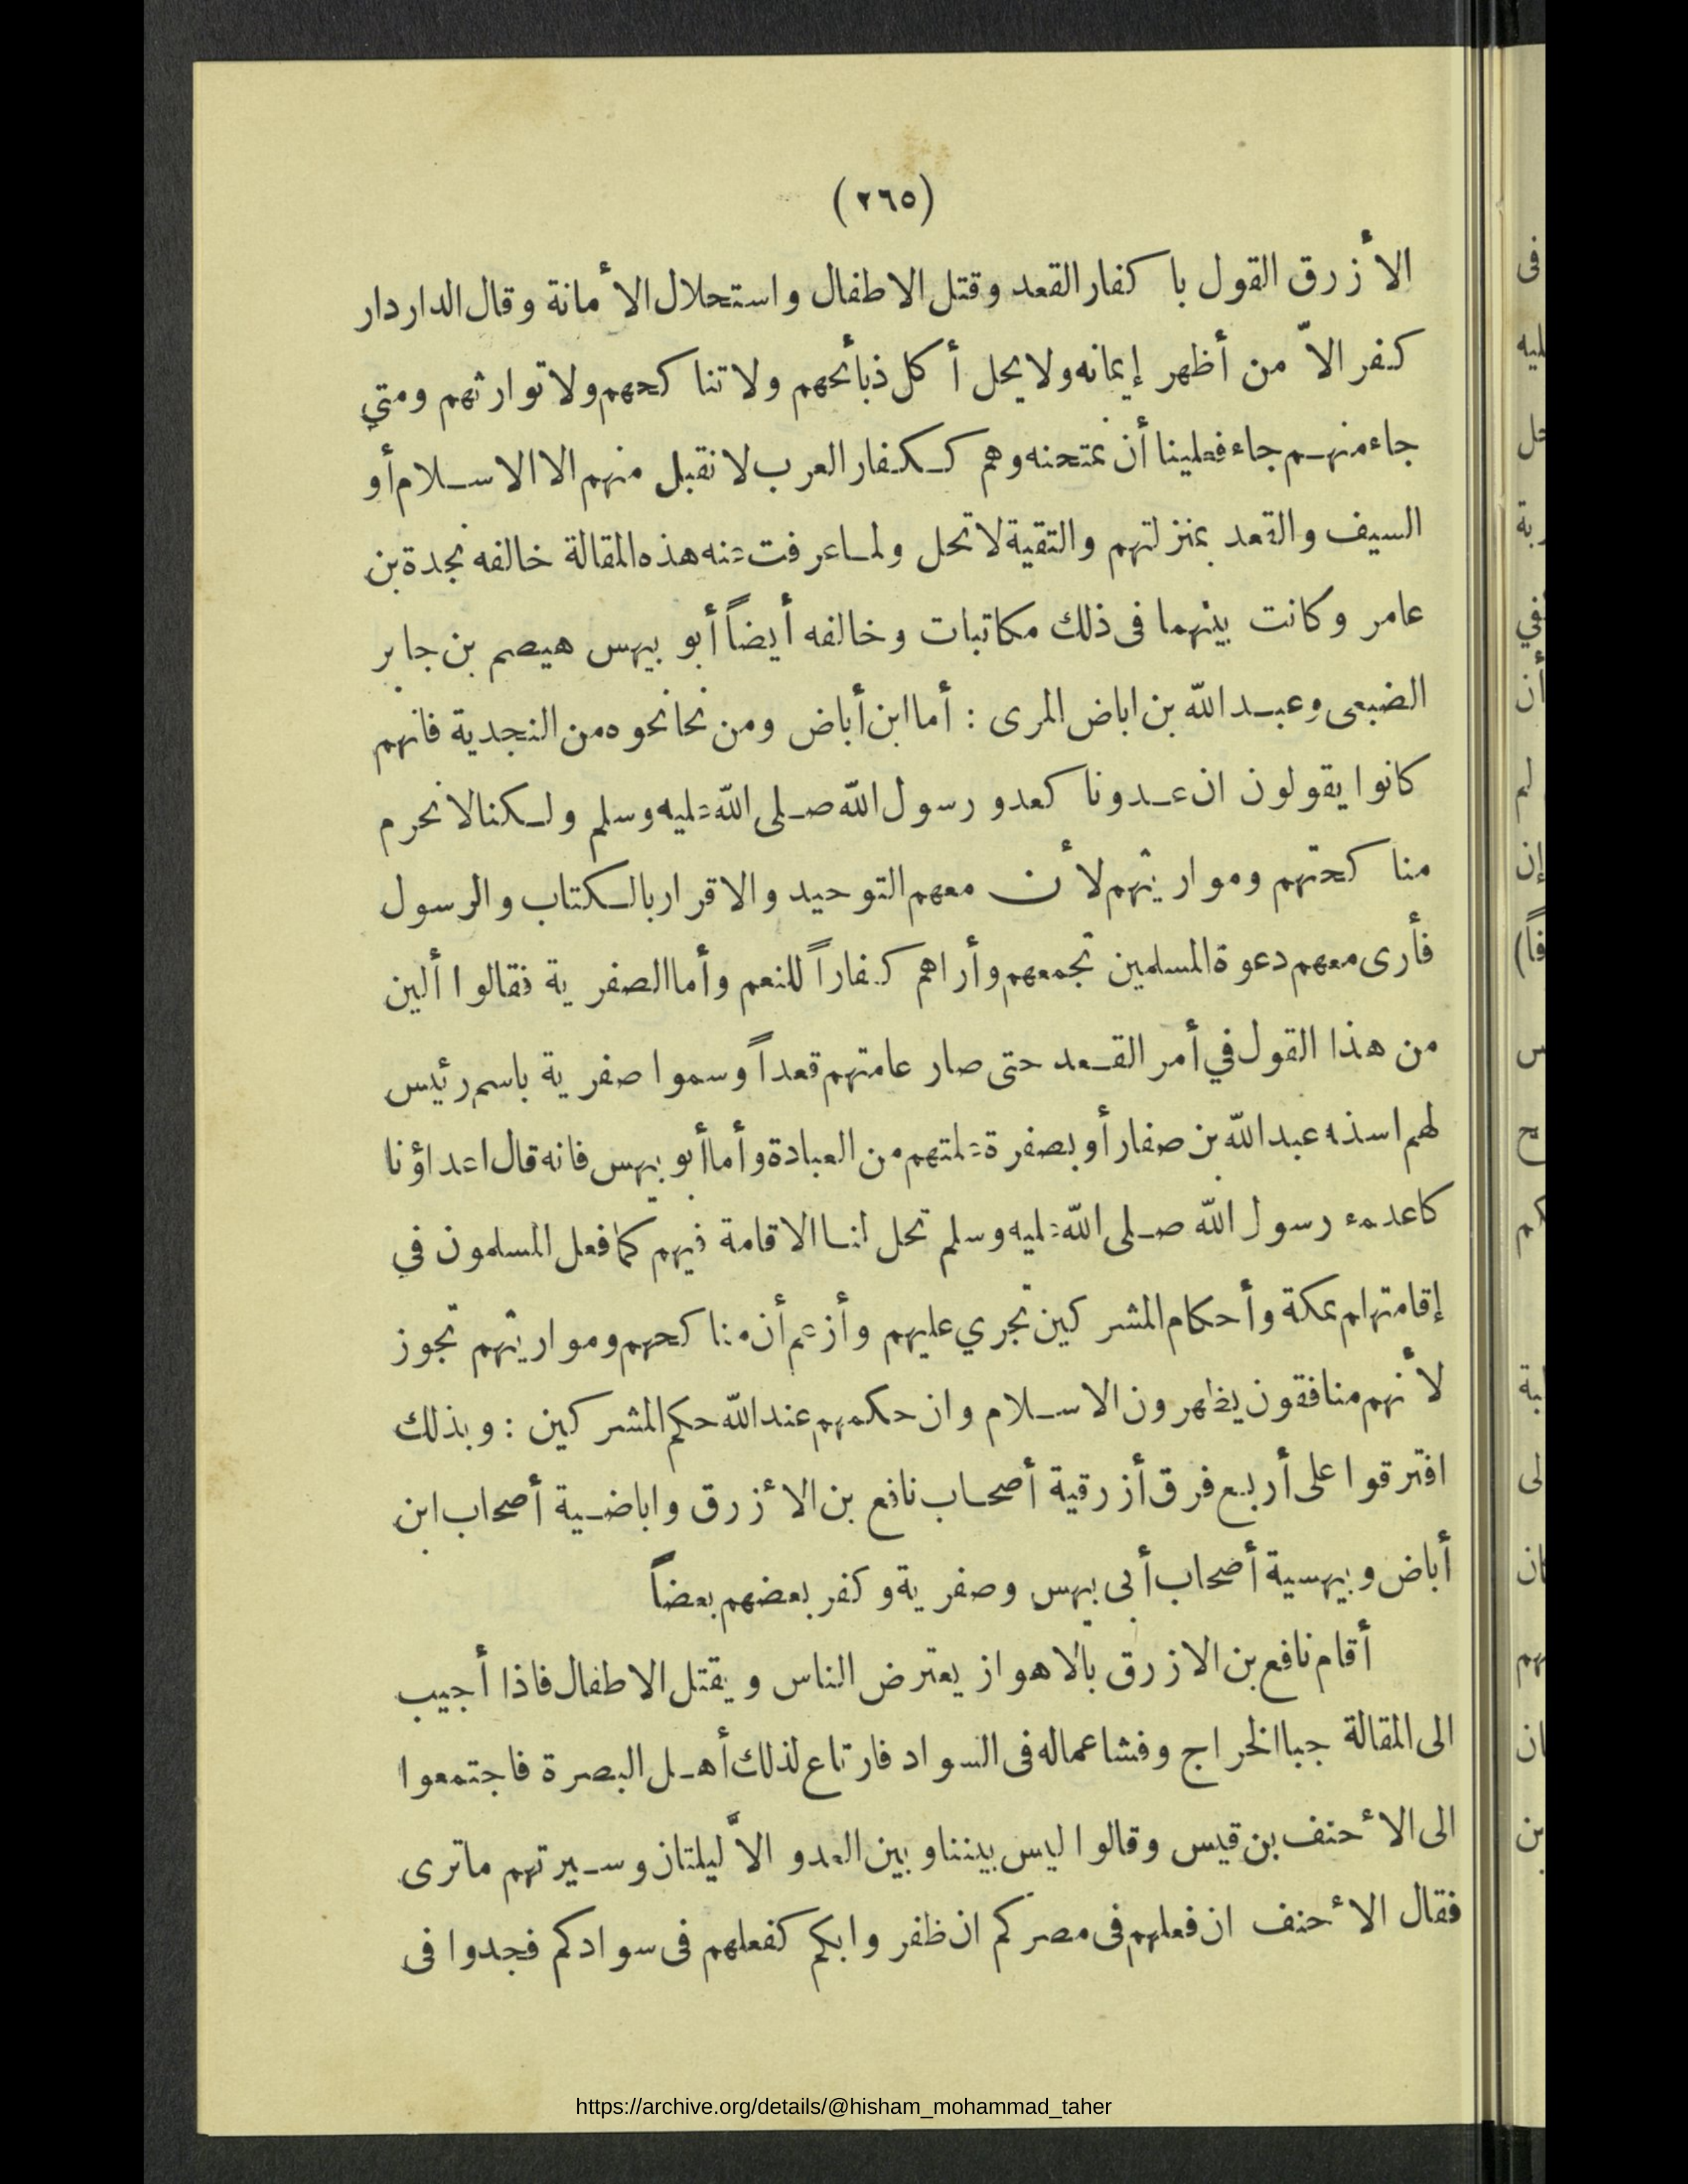 (٢٦٥)
الأزرق القول باكفار القعد وقتل الاطفال واستحلال الأمانة وقال الدار دار
كفر الاّ من أظهر إيمانه ولا يحل أكل ذبائحهم ولا تناكحهم ولا توارثهم ومتي
جاء منهم جاء فعلينا أن نمتحنه وهم ككفار العرب لا نقبل منهم الا الاسلام أو
السيف والقعد بمنزلتهم والتقية لا تحل ولما عرفت عنه هذه المقالة خالفه نجدة بن
عامر وكانت بينهما فى ذلك مكاتبات وخالفه أيضاً أبو بيهس هيصم بن جابر
الضبعى وعبد الله بن اباض المرى : أما ابن أباض ومن نحا نحوه من النجدية فانهم
كانوا يقولون ان عدونا كعدو رسول الله صلى الله عليه وسلم ولكنا لا نحرم
مناكحتهم ومواريثهم لأن معهم التوحيد والاقرار بالكتاب والرسول
فأرى معهم دعوة المسلمين تجمعهم وأراهم كفاراً للنعم وأما الصفرية فقالوا ألين
من هذا القول في أمر القعد حتى صار عامتهم قعداً وسموا صفرية باسم رئيس
لهم اسذه عبد الله بن صفار أو بصفرة علتهم من العبادة وأما أبو بيهس فانه قال اعداؤنا
كاعدمء رسول الله صلى الله عليه وسلم تحل لنا الاقامة فيهم كما فعل المسلمون في
إقامتهام بمكة وأحكام المشركين تجري عليهم وأزعم أن مناكحهم ومواريثهم تجوز
لأنهم منافقون يظهرون الاسلام وان حكمهم عند الله حكم المشركين : وبذلك
افترقوا على أربع فرق أزرقية أصحاب نافع بن الأزرق واباضية أصحاب ابن
أباض وبيهسية أصحاب أبى بيهس وصفرية وكفر بعضهم بعضاً
أقام نافع بن الازرق بالاهواز يعترض الناس ويقتل الاطفال فاذا أجيب
الى المقالة جبا الخراج وفشا عماله فى السواد فارتاع لذلك أهل البصرة فاجتمعوا
الى الأحنف بن قيس وقالوا ليس بيننا وبين العدو الاّ ليلتان وسيرتهم ما ترى
فقال الأحنف ان فعلهم فى مصركم ان ظفروا بكم كفعلهم فى سوادكم فجدوا فى
https://archive.org/details/@hisham_mohammad_taher